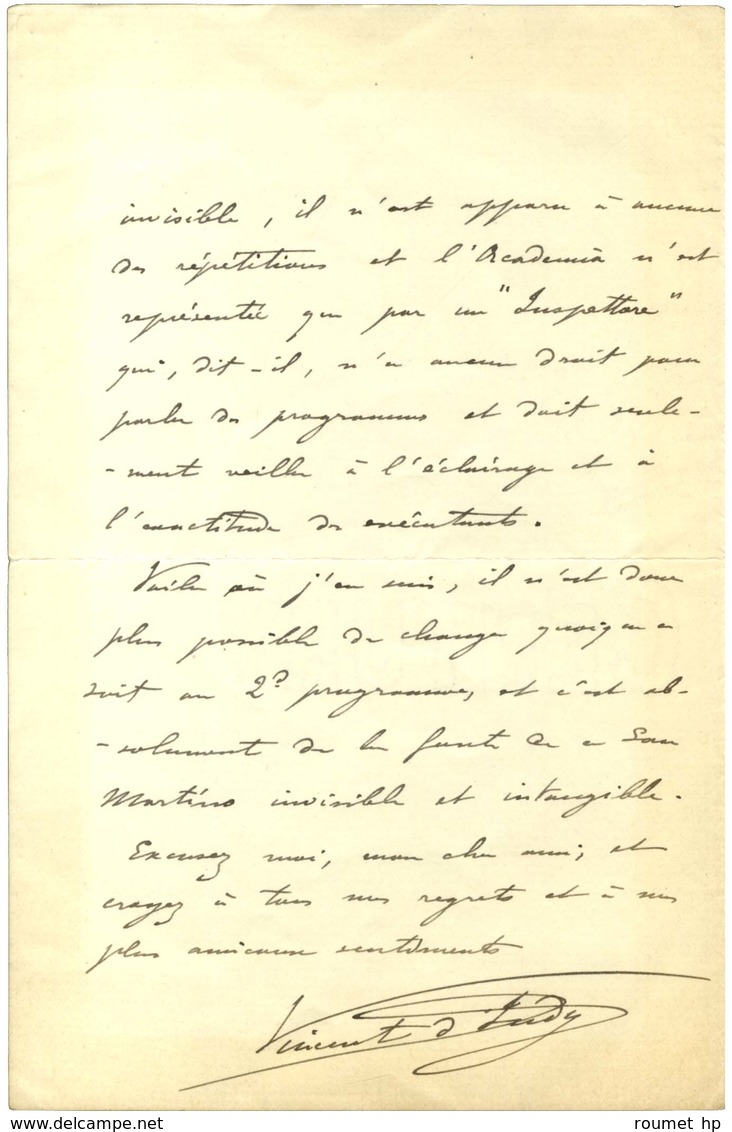 invisible, il n'est apparu à aucune
des répétitions et l'Academia n'est
représentée que par un "Inspettore"
qui, dit-il, n'a aucun droit pour
parler des programmes et doit seule-
-ment veiller à l'éclairage et à
l'exactitude des exécutants.
Voilà où j'en suis, il n'est donc
plus possible de changer quoique ce
soit au 2e programme, et c'est ab-
-solument de la faute de ce San
Martino invisible et intangible.
Excusez moi, mon cher ami, et
croyez à tous mes regrets et à mes
plus amicaux sentiments
Vincent d'Indy
roumet hp